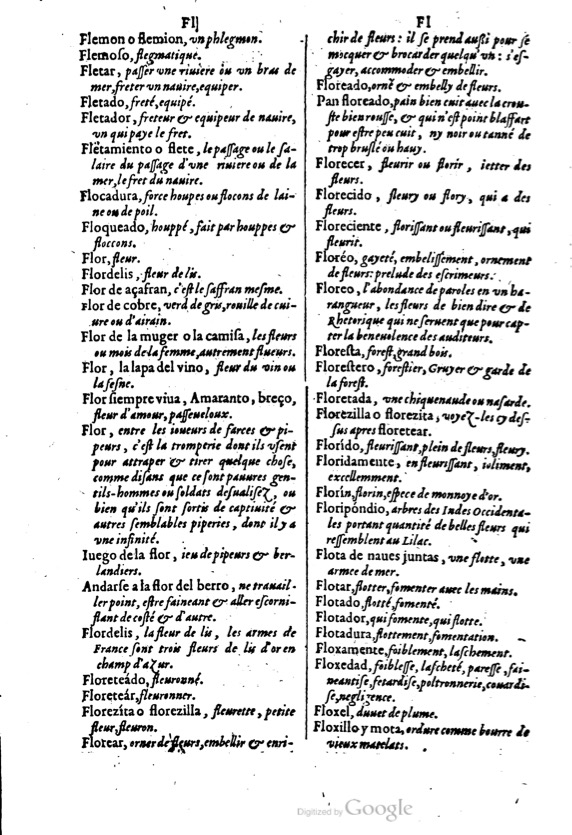 Fl
Flemon o flemion, vn phlegmon.
Flemoso, flegmatique.
Fletar, passer vne riuiere ou vn bras de
mer, freter vn nauire, equiper.
Fletado, freté, equipé.
Fletador, freteur & equipeur de nauire,
vn qui paye le fret.
Fletamiento o flete, le passage ou le sa-
laire du passage d'vne riuiere ou de la
mer, le fret du nauire.
Flocadura, force houpes ou flocons de lai-
ne ou de poil.
Floqueado, houppé, fait par houppes &
floccons.
Flor, fleur.
Flordelis, fleur de lis.
Flor de açafran, c'est le saffran mesme.
Flor de cobre, verd de gris, rouille de cui-
ure ou d'airain.
Flor de la muger o la camisa, les fleurs
ou mois de la femme, autrement flueurs.
Flor, la lapa del vino, fleur du vin ou
la sesne.
Flor siempre viua, Amaranto, breço,
fleur d'amour, passeueloux.
Flor, entre les ioueurs de farces & pi-
peurs, c'est la tromperie dont ils vsent
pour attraper & tirer quelque chose,
comme disans que ce sont pauures gen-
tils-hommes ou soldats desualisez, ou
bien qu'ils sont sortis de captiuité &
autres semblables piperies, dont il y a
vne infinité.
Iuego de la flor, ieu de pipeurs & ber-
landiers.
Andarse a la flor del berro, ne trauail-
ler point, estre faineant & aller escorni-
flant de costé & d'autre.
Flordelis, la fleur de lis, les armes de
France sont trois fleurs de lis d'or en
champ d'azur.
Floreteádo, fleuronné.
Floreteár, fleuronner.
Florezíta o florezilla, fleurette, petite
fleur, fleuron.
Florear, orner de fleurs, embellir & enri-
Fl
chir de fleurs : il se prend aussi pour se
mocquer & brocarder quelqu'vn : s'es-
gayer, accommoder & embellir.
Floreado, orné & embelly de fleurs.
Pan floreado, pain bien cuit auec la crou-
ste bien rousse, & qui n'est point blaffart
pour estre peu cuit, ny noir ou tanné de
trop bruslé ou hauy.
Florecer, fleurir ou florir, ietter des
fleurs.
Florecido, fleury ou flory, qui a des
fleurs.
Floreciente, florissant ou fleurissant, qui
fleurit.
Floréo, gayeté, embelissement, ornement
de fleurs: prelude des escrimeurs.
Floreo, l'abondance de paroles en vn ha-
rangueur, les fleurs de bien dire & de
Rhetorique qui ne seruent que pour cap-
ter la beneuolence des auditeurs.
Floresta, forest, grand bois.
Florestero, forestier, Gruyer & garde de
la forest.
Floretada, vne chiquenaude ou nasarde.
Florezilla o florezita, voyez-les cy des-
sus apres floretear.
Florído, fleurissant, plein de fleurs, fleury.
Floridamente, en fleurissant, ioliment,
excellemment.
Florín, florin, espece de monnoye d'or.
Floripondio, arbres des Indes Occidenta-
les portant quantité de belles fleurs qui
ressemblent au Lilac.
Flota de naues juntas, vne flotte, vne
armee de mer.
Flotar, flotter, fomenter auec les mains.
Flotado, flotté, fomenté.
Flotador, qui fomente, qui flotte.
Flotadura, flottement, fomentation.
Floxamente, foiblement, laschement.
Floxedad, foiblesse, lascheté, paresse, fai-
neantise, fetardise, poltronnerie, couardi-
se, negligence.
Floxel, duuet de plume.
Floxillo y mota, ordure comme bourre de
vieux matelats.
Digitized by Google